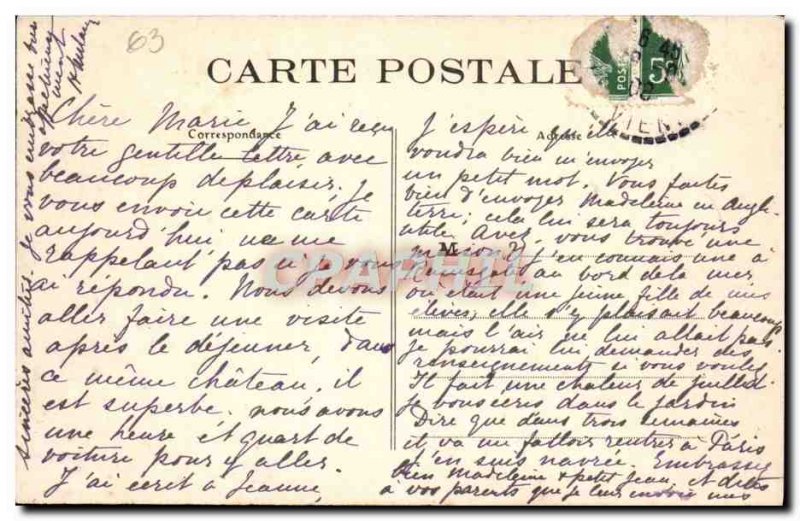 63
CARTE POSTALE
Correspondance
Adresse
5
POSTE
VIENN
M
CPAPHIL.com
Chère Marie J'ai reçu
votre gentille lettre, avec
beaucoup de plaisir. Je
vous envoie cette carte
aujourd'hui ne me
rappelant pas si je vous
ai répondu. Nous devons
aller faire une visite
après le déjeuner, dans
ce même château, il
est superbe. nous avons
une heure et quart de
voiture pour y aller.
J'ai écrit à Jeanne,
J'espère qu'elle
voudra bien m'envoyer
un petit mot. Vous faites
bien d'envoyer Madeleine en Angle-
terre; cela lui sera toujours
utile Avez-vous trouvé une
maison? J'en connais une à
au bord de la mer
où était une jeune fille de mes
élèves, elle s'y plaisait beaucoup
mais l'air ne lui allait pas.
je pourrai lui demander des
renseignements si vous voulez
Il fait une chaleur de juillet.
je dans le jardin
Dire que dans trois semaines
il va me falloir rentrer à Paris
j'en suis navrée. Embrassez
bien Madeleine & petit Jean, et dites
à vos parents que je leur envoie mes
sincères amitiés. Je vous embrasse